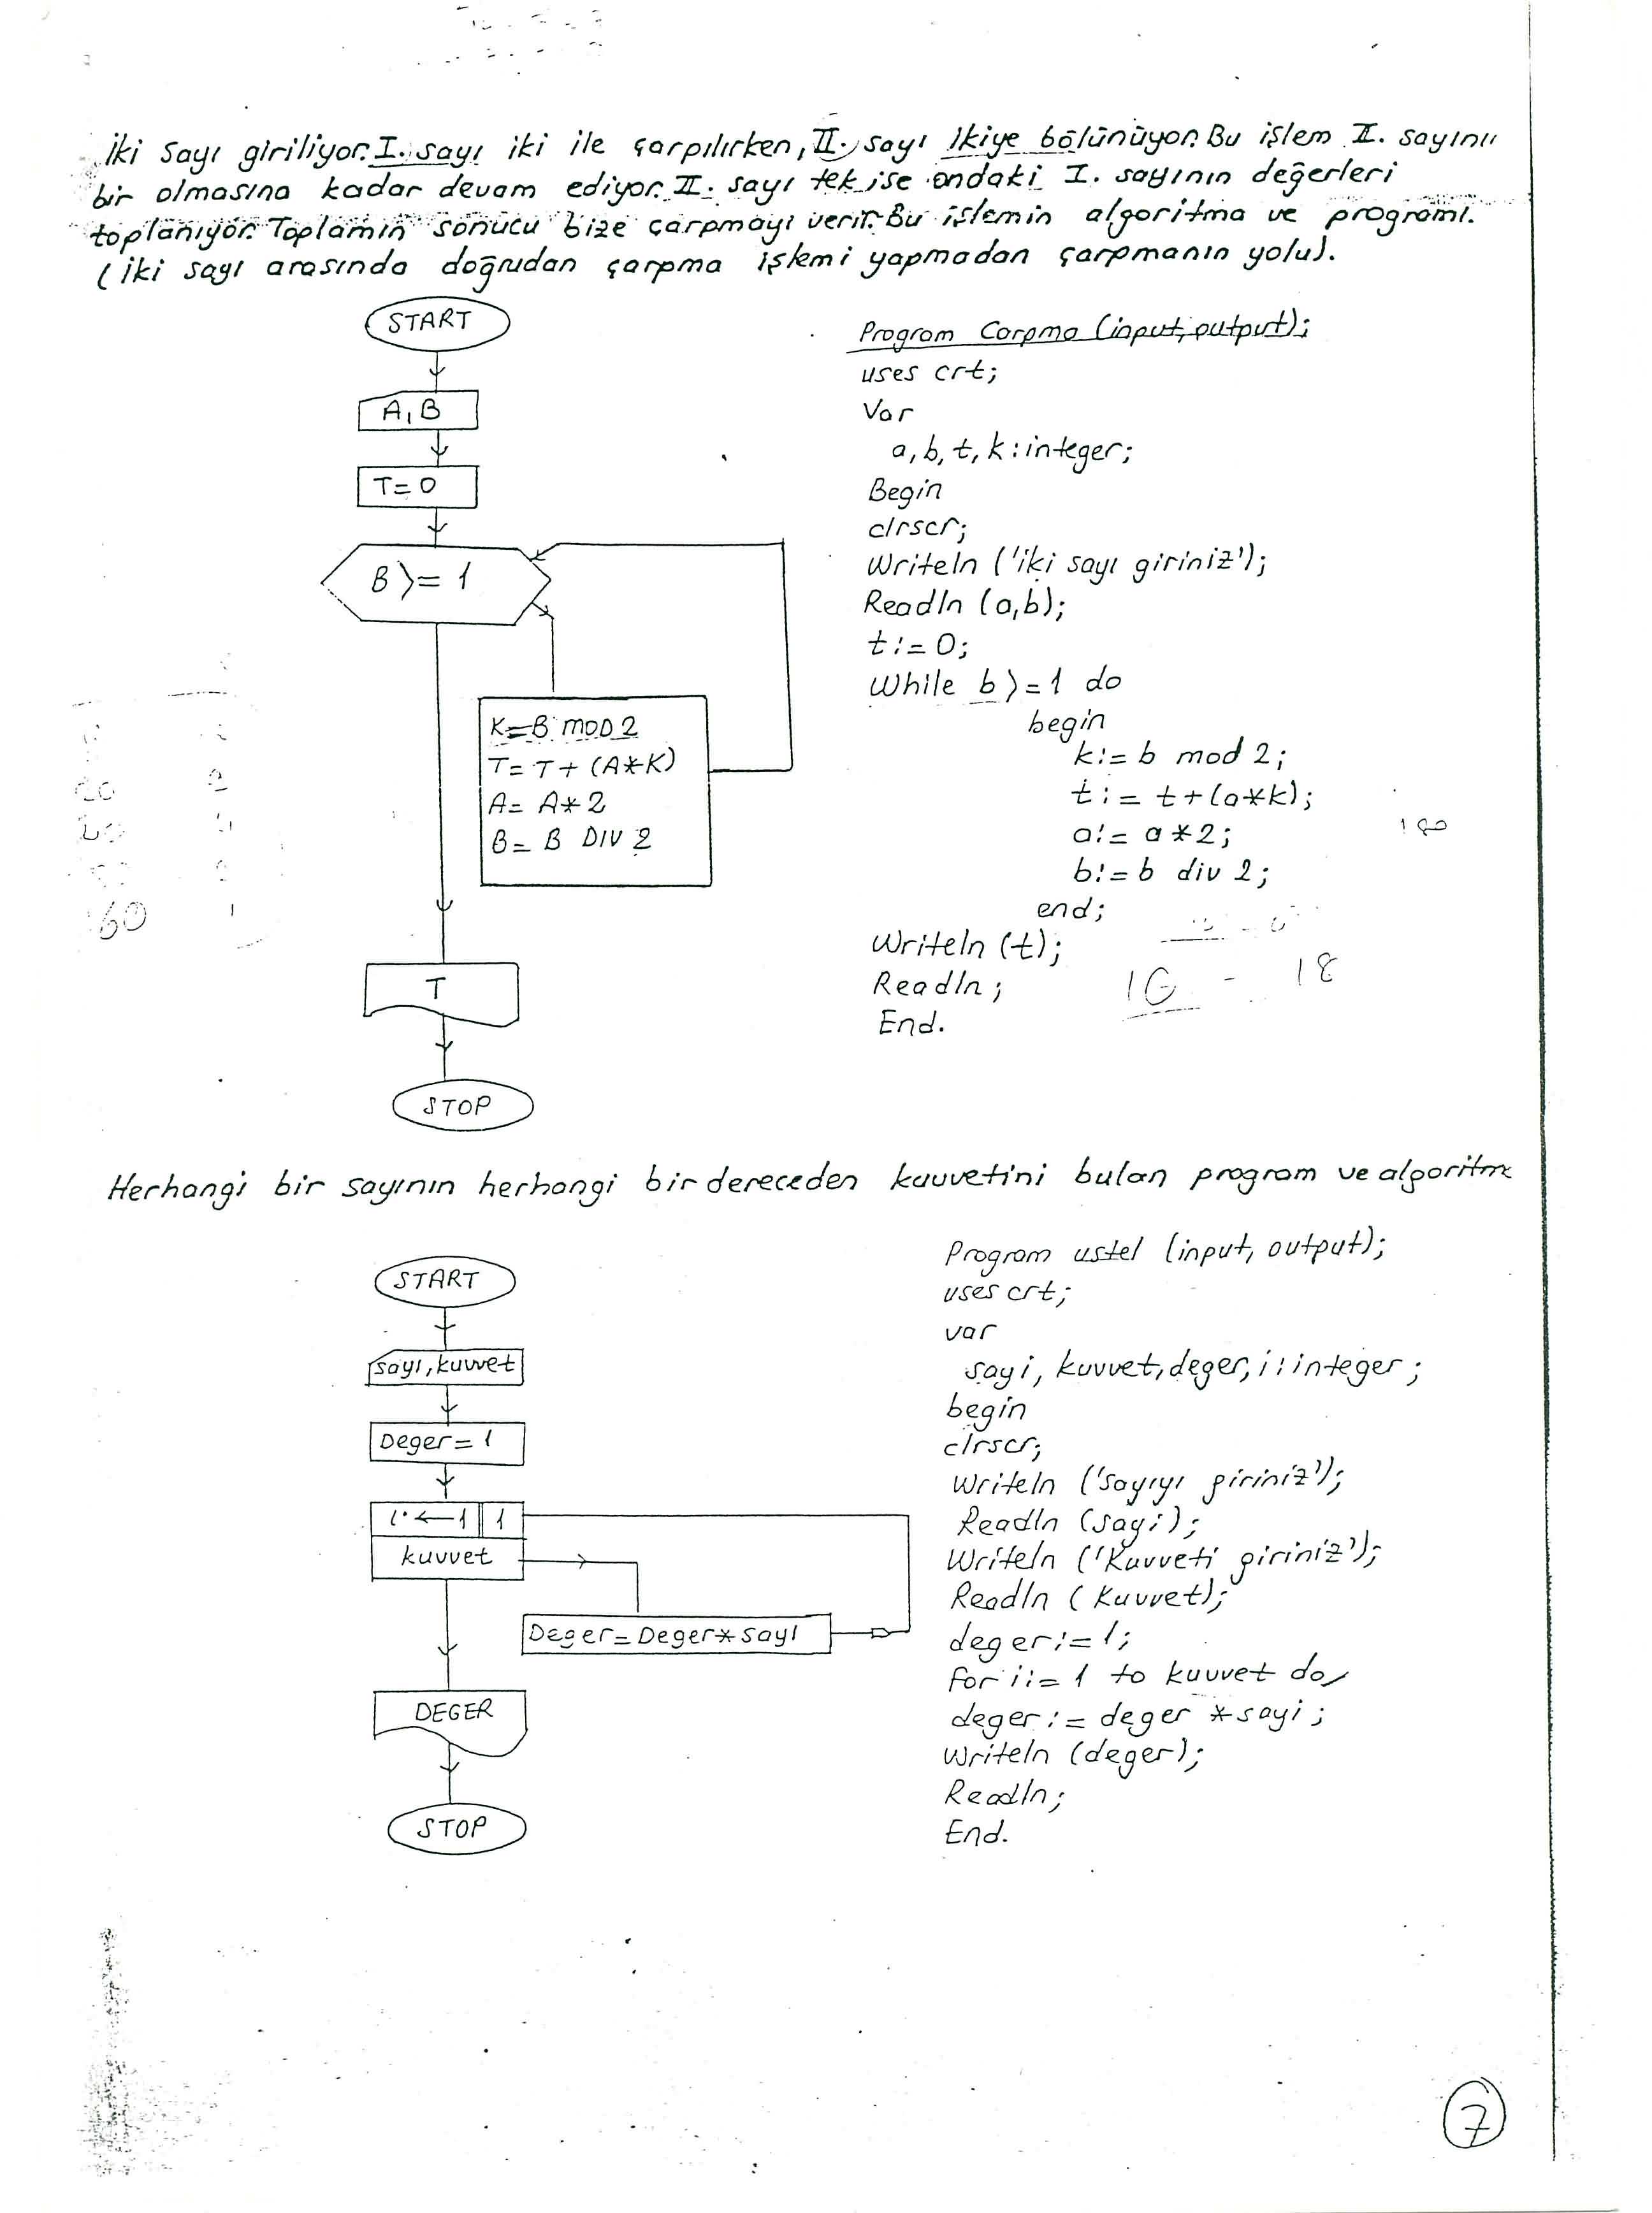 İki sayı giriliyor. I. sayı iki ile çarpılırken, II. sayı ikiye bölünüyor. Bu işlem II. sayının
bir olmasına kadar devam ediyor. II. sayı tek ise ondaki I. sayının değerleri
toplanıyor. Toplamın sonucu bize çarpmayı verir. Bu işlemin algoritma ve programı.
(İki sayı arasında doğrudan çarpma işlemi yapmadan çarpmanın yolu).
START
A, B
T=0
B >= 1
K=B MOD 2
T=T+(A*K)
A= A*2
B= B DIV 2
T
STOP
Program Carpma (input,output);
uses crt;
Var
a, b, t, k : integer;
Begin
clrscr;
Writeln ('iki sayı giriniz');
Readln (a,b);
t:=0;
While b >=1 do
begin
k:= b mod 2;
t:= t+(a*k);
a:= a*2;
b:= b div 2;
end;
Writeln (t);
Readln;
End.
20
60
16 - 18
Herhangi bir sayının herhangi bir dereceden kuvvetini bulan program ve algoritma
START
sayı, kuvvet
Deger=1
i ← 1 1
kuvvet
Deger=Deger*sayı
DEGER
STOP
Program ustel (input, output);
uses crt;
var
sayi, kuvvet, deger, i : integer;
begin
clrscr;
Writeln ('sayıyı giriniz');
Readln (sayi);
Writeln ('Kuvveti giriniz');
Readln (kuvvet);
deger:=1;
for i:= 1 to kuvvet do
deger:= deger *sayi;
Writeln (deger);
Readln;
End.
7